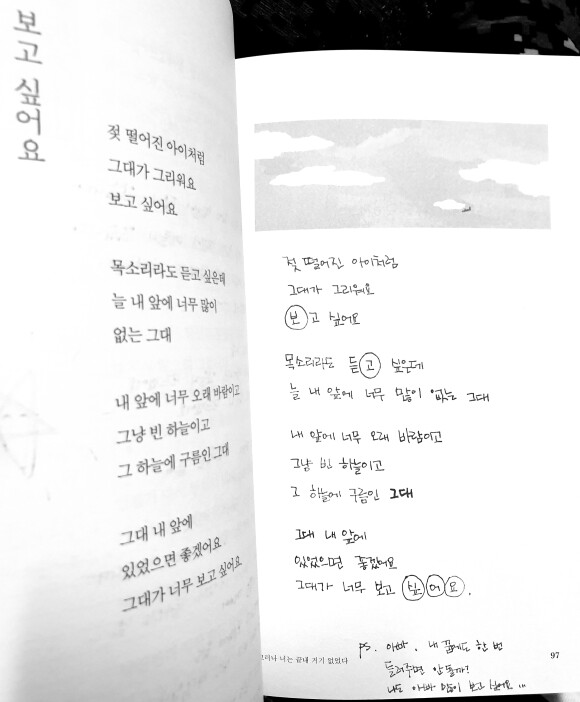 보고 싶어요
젖 떨어진 아이처럼
그대가 그리워요
보고 싶어요
목소리라도 듣고 싶은데
늘 내 앞에 너무 많이
없는 그대
내 앞에 너무 오래 바람이고
그냥 빈 하늘이고
그 하늘에 구름인 그대
그대 내 앞에
있었으면 좋겠어요
그대가 너무 보고 싶어요
젖 떨어진 아이처럼
그대가 그리워요
보고 싶어요
목소리라도 듣고 싶은데
늘 내 앞에 너무 많이 없는 그대
내 앞에 너무 오래 바람이고
그냥 빈 하늘이고
그 하늘에 구름인 그대
그대 내 앞에
있었으면 좋겠어요
그대가 너무 보고 싶어요.
너는 끝내 거기 없었다
97
PS. 아빠, 내 꿈에도 한 번
들려주면 안 될까?
나도 아빠 많이 보고 싶어요 ...